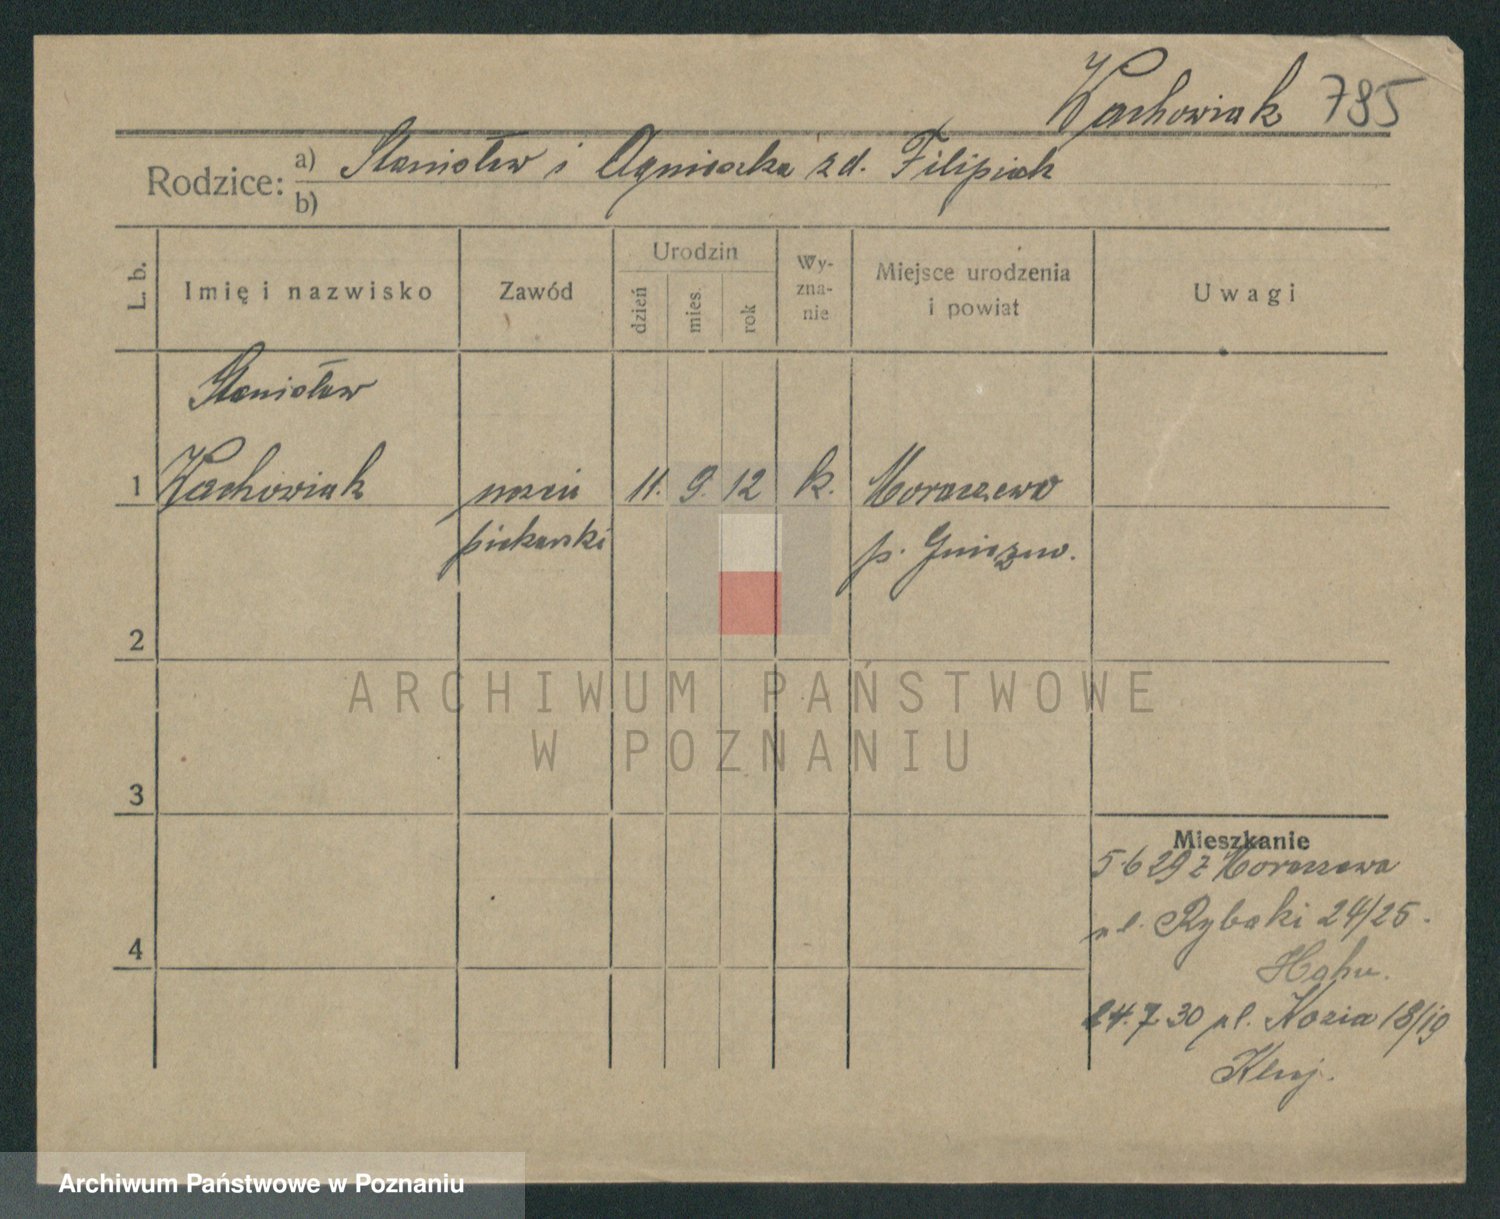 Wachowiak 785
Rodzice: a) Stanisław i Agnieszka z d. Filipiak
b)
L. b. Imię i nazwisko Zawód Urodzin dzień mies. rok Wy-zna-nie Miejsce urodzenia i powiat Uwagi
Stanisław
1 Wachowiak uczeń 11. 9. 12 k. Moraszewo
piekarski p. Gniezno.
2
ARCHIWUM PAŃSTWOWE
W POZNANIU
3
Mieszkanie
5.6 29 z Moraszewa
ul. Rybaki 24/25.
4
24.7 30 ul. Kozia 18/19
Archiwum Państwowe w Poznaniu